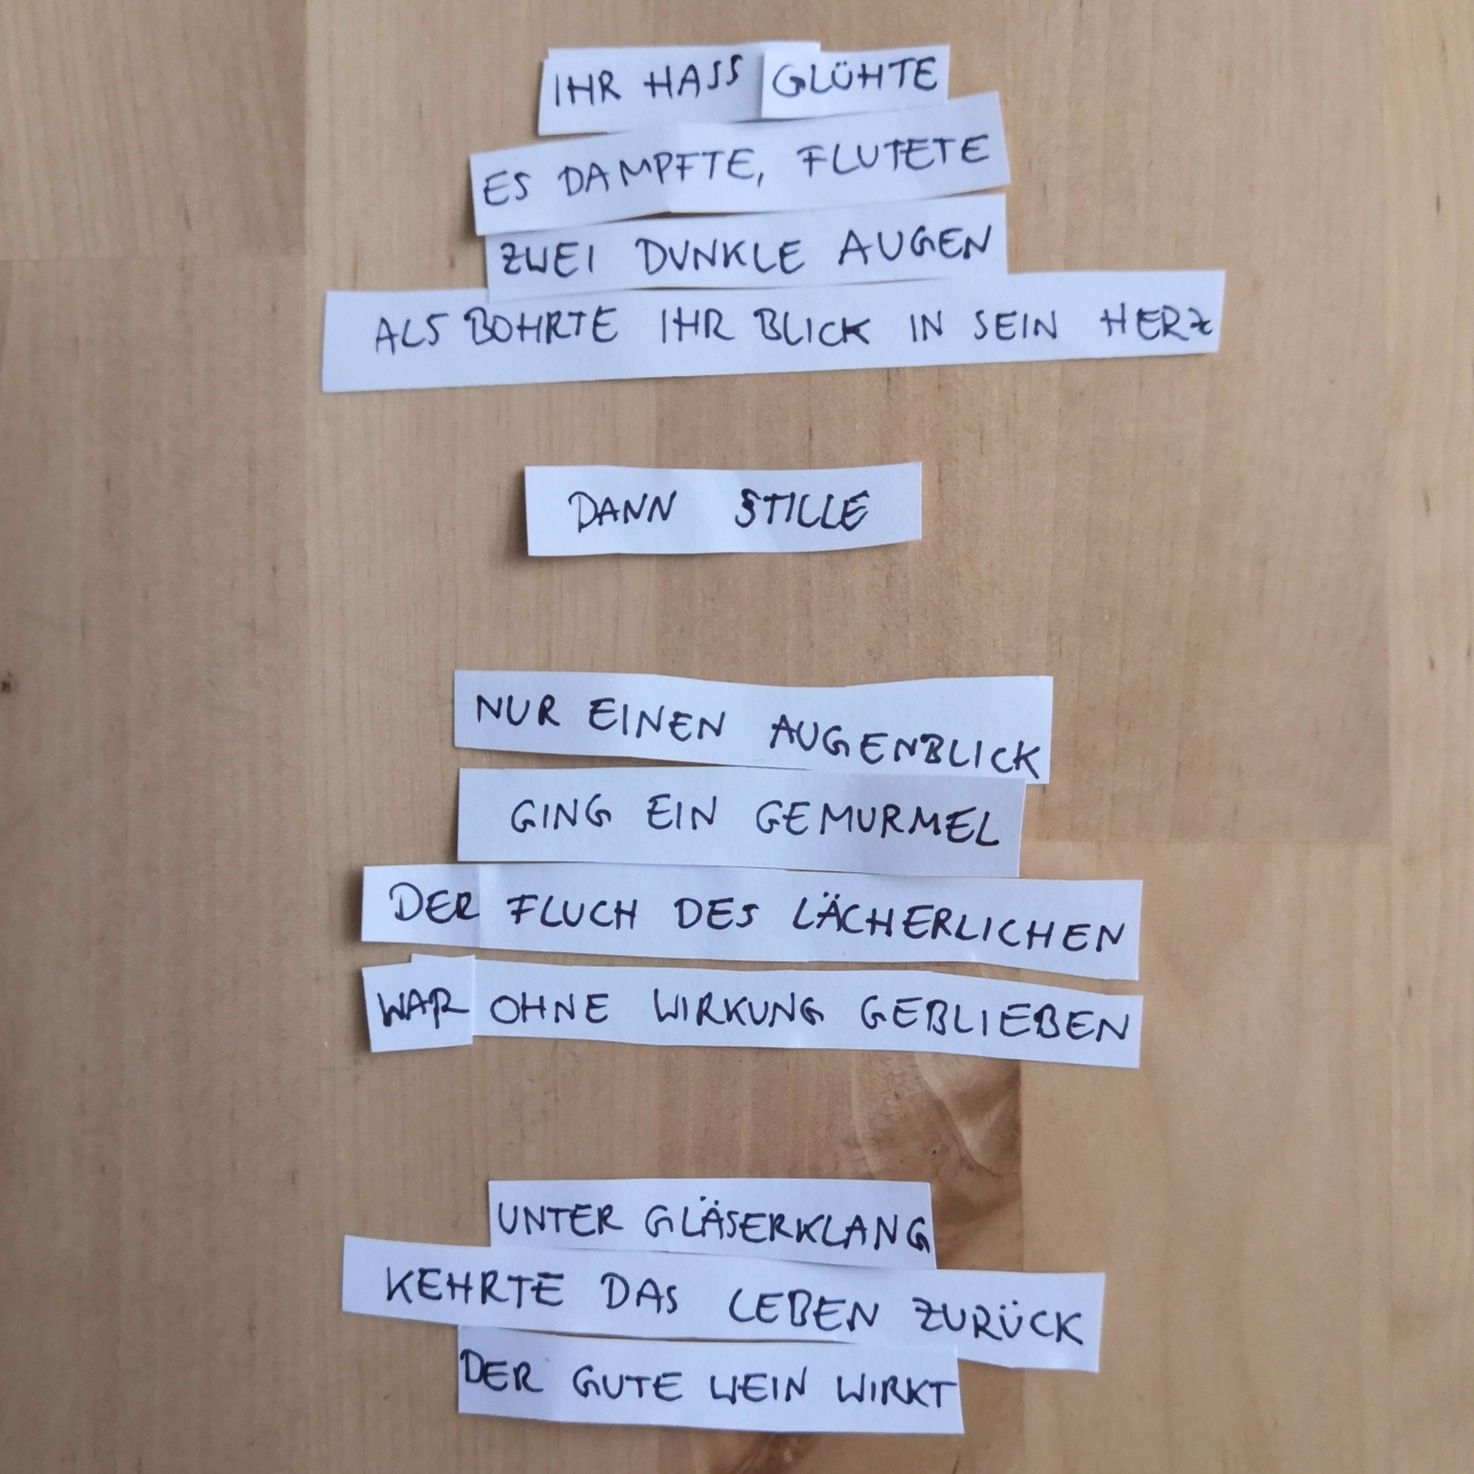 IHR HASS GLÜHTE
ES DAMPFTE, FLUTETE
ZWEI DUNKLE AUGEN
ALS BOHRTE IHR BLICK IN SEIN HERZ
DANN STILLE
NUR EINEN AUGENBLICK
GING EIN GEMURMEL
DER FLUCH DES LÄCHERLICHEN
WAR OHNE WIRKUNG GEBLIEBEN
UNTER GLÄSERKLANG
KEHRTE DAS LEBEN ZURÜCK
DER GUTE WEIN WIRKT